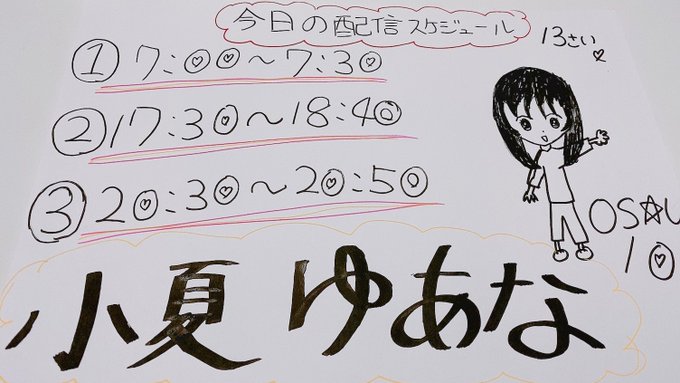 今日の配信スケジュール
13さい♡
① 7:00～7:30
② 17:30～18:40
③ 20:30～20:50
OS☆U
10
小夏 ゆあな